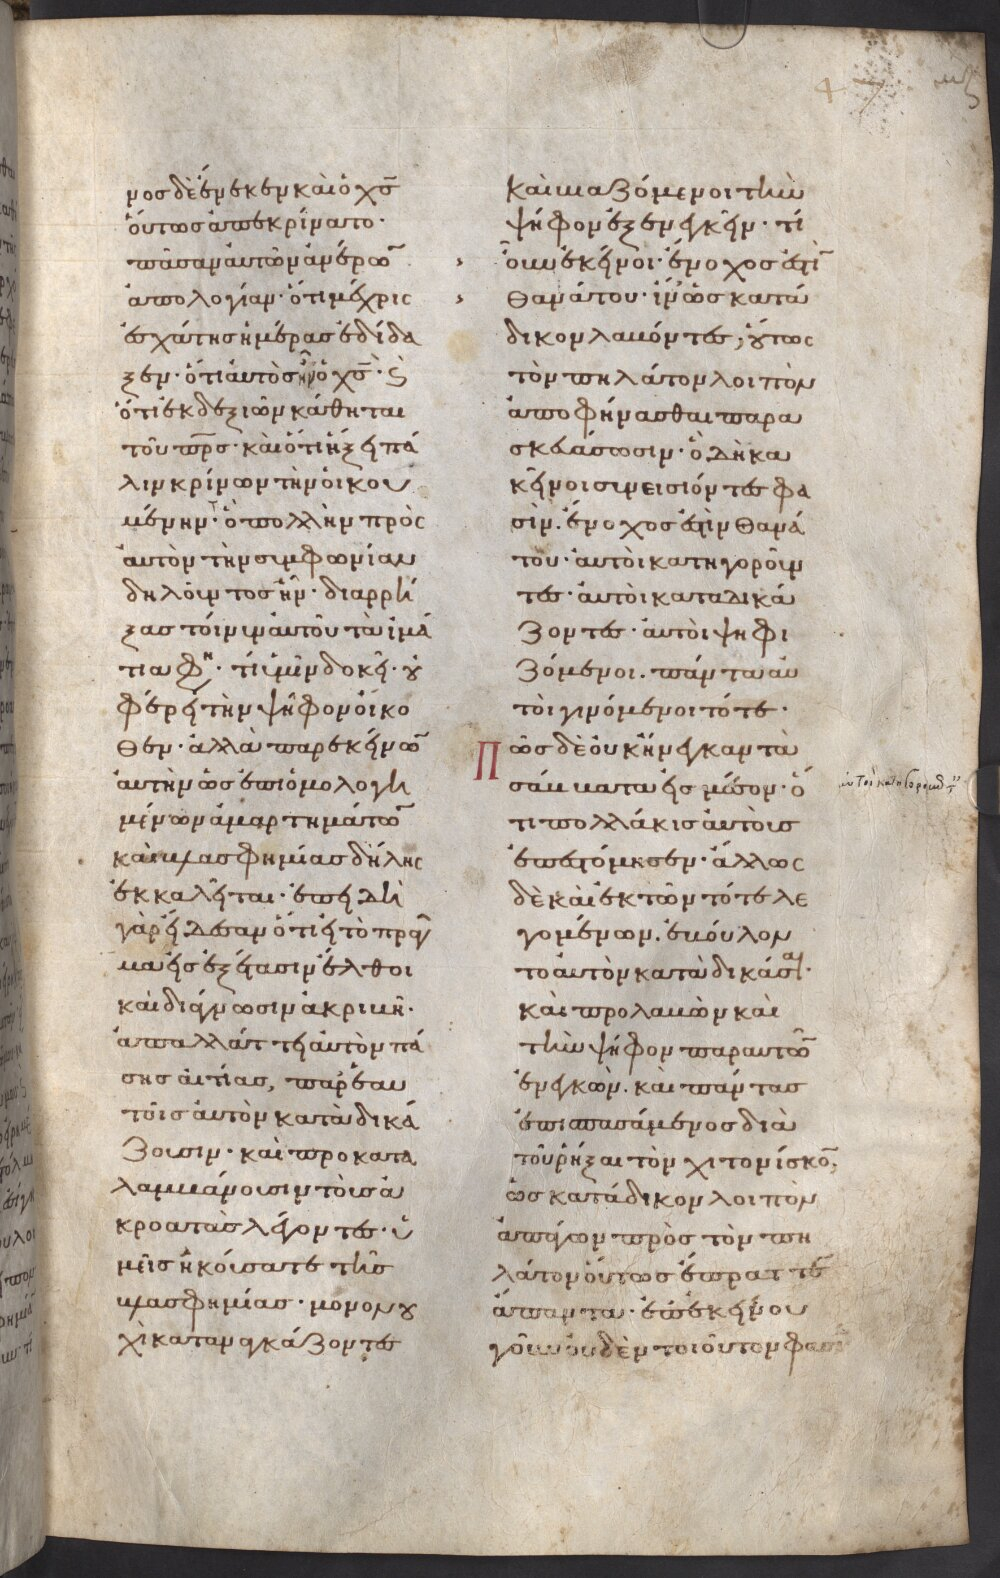 μζ
νος δὲ ἕνεκεν καὶ ὁ χς
οὕτως ἀπεκρίνατο·
πᾶσαν αὐτῶν ἀναιρῶ
ἀπολογίαν· ὅτι μέχρις
ἐσχάτης ἡμέρας ἐδίδα
ξεν· ὅτι αὐτὸς ἦν ὁ χς· ϗ
ὅτι ἐκ δεξιῶν κάθηται
τοῦ πρς· καὶ ὅτι ἥξει πά
λιν κρίνων τὴν οἰκου
μένην· ὃ πολλὴν πρὸς
αὐτὸν τὴν συμφωνίαν
δηλοῦντος ἦν· διαρρή
ξας τοίνυν αὐτοῦ τὰ ἱμά
τια φη· τί ὑμῖν δοκεῖ· οὐ
φέρει τὴν ψῆφον οἴκο
θεν· ἀλλὰ παρ εκείνω
αὐτὴν ὡς ἐπὶ ὁμολογη
μένων ἁμαρτημάτω
καὶ βλασφημίας δήλης
ἐκκαλεῖται· ἐπειδὴ
γὰρ ᾔδεσαν ὅτι εἰ τὸ πρᾶγ
μα εἰς ἐξέτασιν ἔλθοι
καὶ διάγνωσιν ἀκριβῆ·
ἀπαλλάττει αὐτὸν πά
σης αἰτίας, παρ εαυ
τοῖς αὐτὸν καταδικά
ζουσιν· καὶ προκατα
λαμβάνουσιν τοὺς ἀ
κροατὰς λέγοντες· ὑ
μεῖς ἠκούσατε τῆς
βλασφημίας· μονονου
χὶ καταναγκάζοντες
καὶ βιαζόμενοι τὴν
ψῆφον ἐξενεγκεῖν· τί
οὖν ἐκεῖνοι· ἔνοχος ἐστὶ
θανάτου· ἵν ὡς κατά
δικον λαβόντες, οὕτως
τὸν πηλάτον λοιπὸν
ἀποφήνασθαι παρα
σκευάσωσιν· ὃ δὴ κα
κεῖνοι συνειδότες φα
σὶν· ἔνοχος ἐστὶν θανά
του· αὐτοὶ κατηγοροῦν
τες· αὐτοὶ καταδικά
ζοντες· αὐτοὶ ψηφι
ζόμενοι· πάντα αὐ
τοὶ γινόμενοι τότε·
Πῶς δὲ οὐκ ἤνεγκαν τὰ
σάββατα εἰς μέσον· ὅ
τι πολλάκις αὐτοὺς
ἐπεστόμησεν· ἄλλως
δὲ καὶ ἐκ τῶν τότε λε
γομένων· ἐβούλον
το αὐτὸν καταδικάσαι·
καὶ προλαβὼν καὶ
τὴν ψῆφον παρ αυτῶ
ἐνεγκὼν· καὶ πάντας
ἐπισπασάμενος διὰ
τοῦ ῥῆξαι τὸν χιτονίσκο,
ὡς κατάδικον λοιπὸν
ἀπάγων πρὸς τὸν πη
λάτον οὕτως ἔπραττε
ἅπαντα· ἐπ εκείνου
γοῦν οὐδὲν τοιοῦτον φασὶν